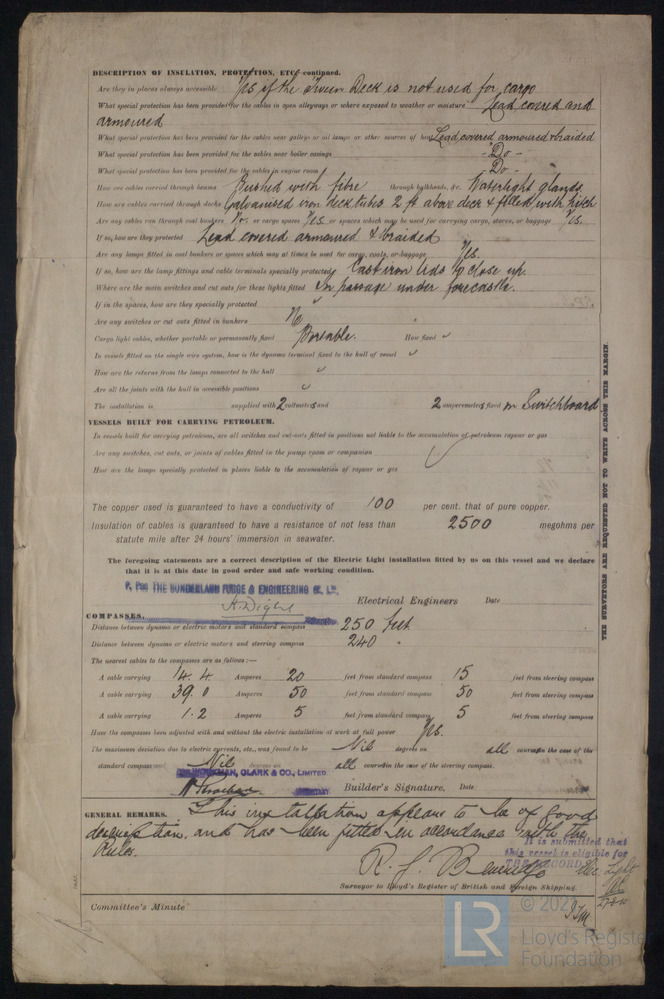 DESCRIPTION OF INSULATION, PROTECTION, ETC.—continued.
Are they in places always accessible Yes if the Tween Deck is not used for cargo
What special protection has been provided for the cables in open alleyways or where exposed to weather or moisture Lead covered and
armoured
What special protection has been provided for the cables near galleys or oil lamps or other sources of heat Lead covered armoured & braided
What special protection has been provided for the cables near boiler casings - Do -
What special protection has been provided for the cables in engine room - Do -
How are cables carried through beams Bushed with fibre through bulkheads, &c. Watertight glands
How are cables carried through decks Galvanised iron deck tubes 2 ft above deck & filled with pitch
Are any cables run through coal bunkers No. or cargo spaces Yes or spaces which may be used for carrying cargo, stores, or baggage Yes.
If so, how are they protected Lead covered armoured & braided
Are any lamps fitted in coal bunkers or spaces which may at times be used for cargo, coals, or baggage Yes.
If so, how are the lamp fittings and cable terminals specially protected Cast iron lids to close up.
Where are the main switches and cut outs for these lights fitted In passage under forecastle.
If in the spaces, how are they specially protected
Are any switches or cut outs fitted in bunkers No
Cargo light cables, whether portable or permanently fixed Portable. How fixed
In vessels fitted on the single wire system, how is the dynamo terminal fixed to the hull of vessel
How are the returns from the lamps connected to the hull
Are all the joints with the hull in accessible positions
The installation is supplied with 2 voltmeters and 2 amperemeters fixed on Switchboard
VESSELS BUILT FOR CARRYING PETROLEUM.
In vessels built for carrying petroleum, are all switches and cut-outs fitted in positions not liable to the accumulation of petroleum vapour or gas
Are any switches, cut outs, or joints of cables fitted in the pump room or companion
How are the lamps specially protected in places liable to the accumulation of vapour or gas
The copper used is guaranteed to have a conductivity of 100 per cent. that of pure copper.
Insulation of cables is guaranteed to have a resistance of not less than 2500 megohms per
statute mile after 24 hours' immersion in seawater.
The foregoing statements are a correct description of the Electric Light installation fitted by us on this vessel and we declare
that it is at this date in good order and safe working condition.
P. Pro THE SUNDERLAND FORGE & ENGINEERING Co. LD.
Electrical Engineers Date
COMPASSES.
Distance between dynamo or electric motors and standard compass 250 feet
Distance between dynamo or electric motors and steering compass 240 "
The nearest cables to the compasses are as follows:—
A cable carrying 14.4 Amperes 20 feet from standard compass 15 feet from steering compass
A cable carrying 39.0 Amperes 50 feet from standard compass 50 feet from steering compass
A cable carrying 1.2 Amperes 5 feet from standard compass 5 feet from steering compass
Have the compasses been adjusted with and without the electric installation at work at full power Yes.
The maximum deviation due to electric currents, etc., was found to be Nil degrees on all courses in the case of the
standard compass and Nil degrees on all courses in the case of the steering compass.
FOR WORKMAN, CLARK & CO., LIMITED
SECRETARY
Builder's Signature. Date
GENERAL REMARKS. This installation appears to be of good
description, and has been fitted in accordance with the
Rules.
It is submitted that
this vessel is eligible for
THE RECORD. Elec. Light
Surveyor to Lloyd's Register of British and Foreign Shipping.
Committee's Minute
THE SURVEYORS ARE REQUESTED NOT TO WRITE ACROSS THIS MARGIN.
LR
© 2021
Lloyd's Register
Foundation